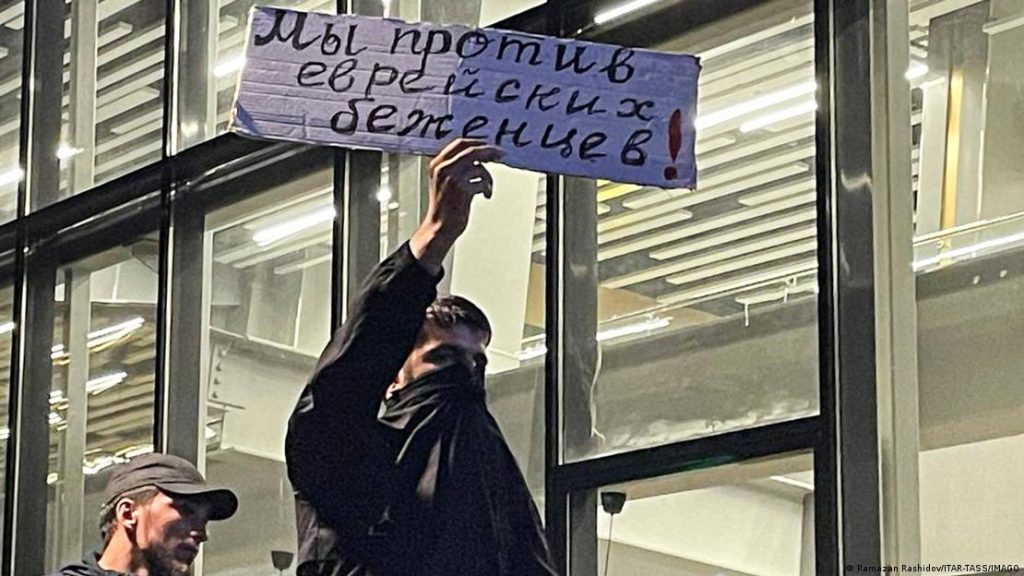 Мы против
еврейских
беженцев!
© Ramazan Rashidov/ITAR-TASS/IMAGO